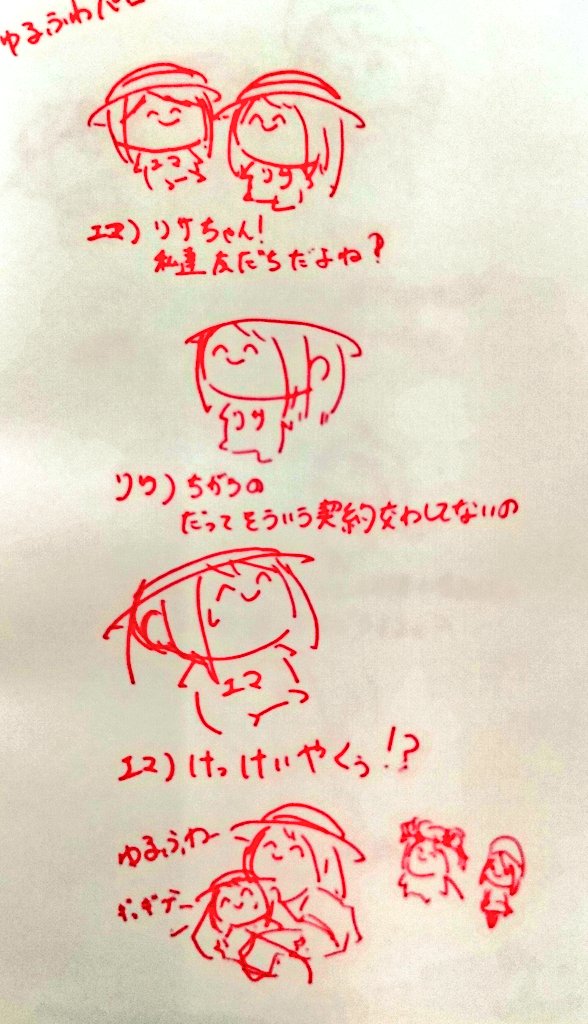 ゆるふわパロ
エマ
リサ
エマ)リサちゃん!
私達友だちだよね?
リサ
リサ)ちがうの
だってそういう契約交わしてないの
エマ
エマ)けっけいやくぅ!?
ゆるふわ